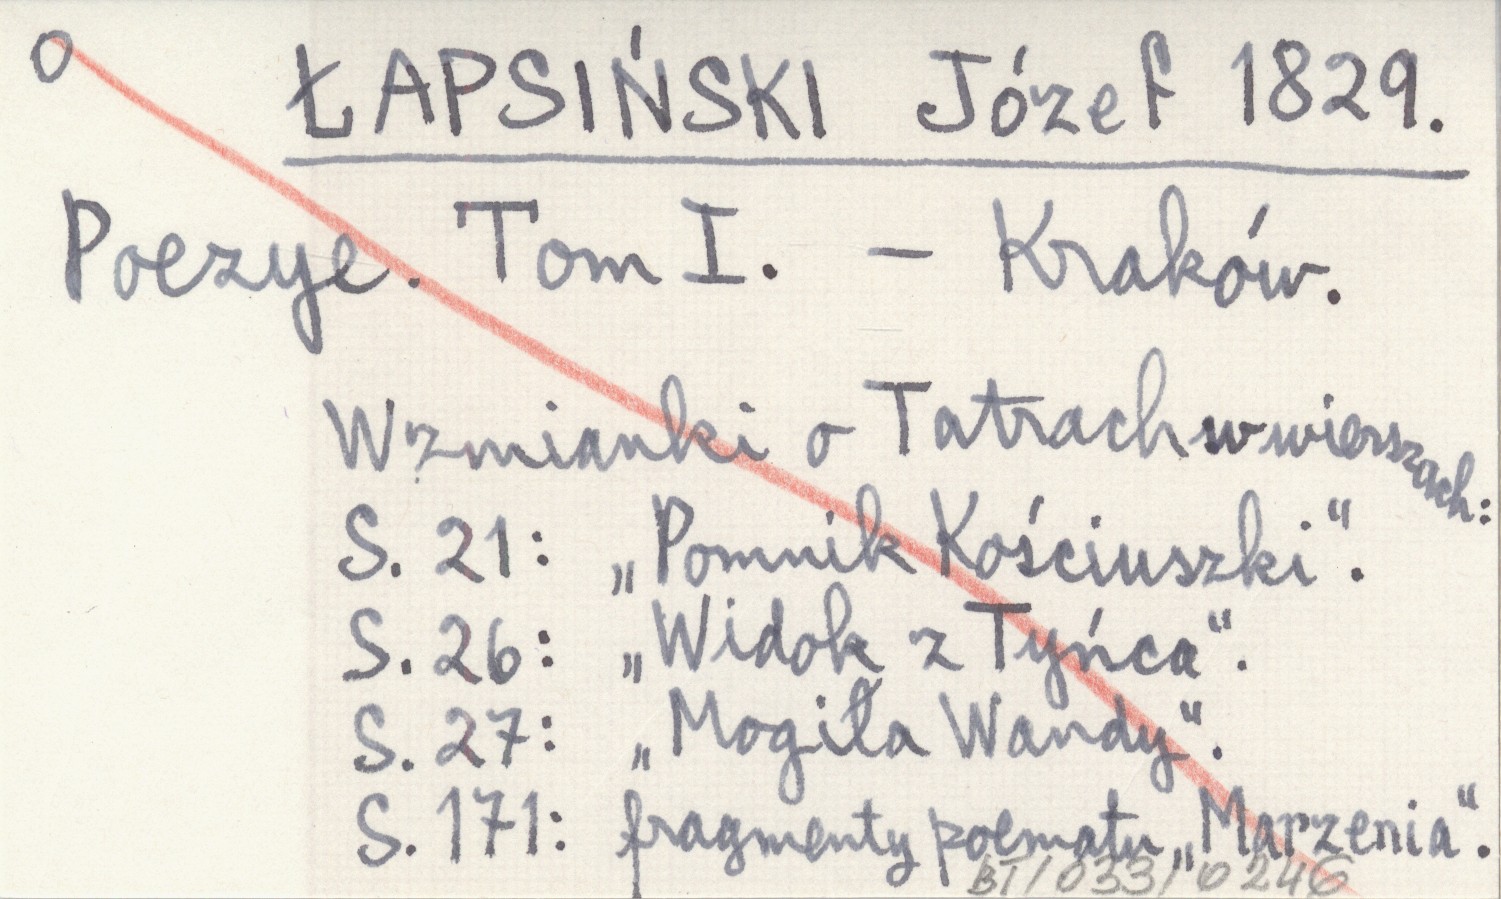 o ŁAPSIŃSKI Józef 1829.
Poezye. Tom I. – Kraków.
Wzmianki o Tatrach w wierszach:
S. 21: „Pomnik Kościuszki“.
S. 26: „Widok z Tyńca“.
S. 27: „Mogiła Wandy“.
S. 171: fragmenty poematu „Marzenia“.
BT/033/0246